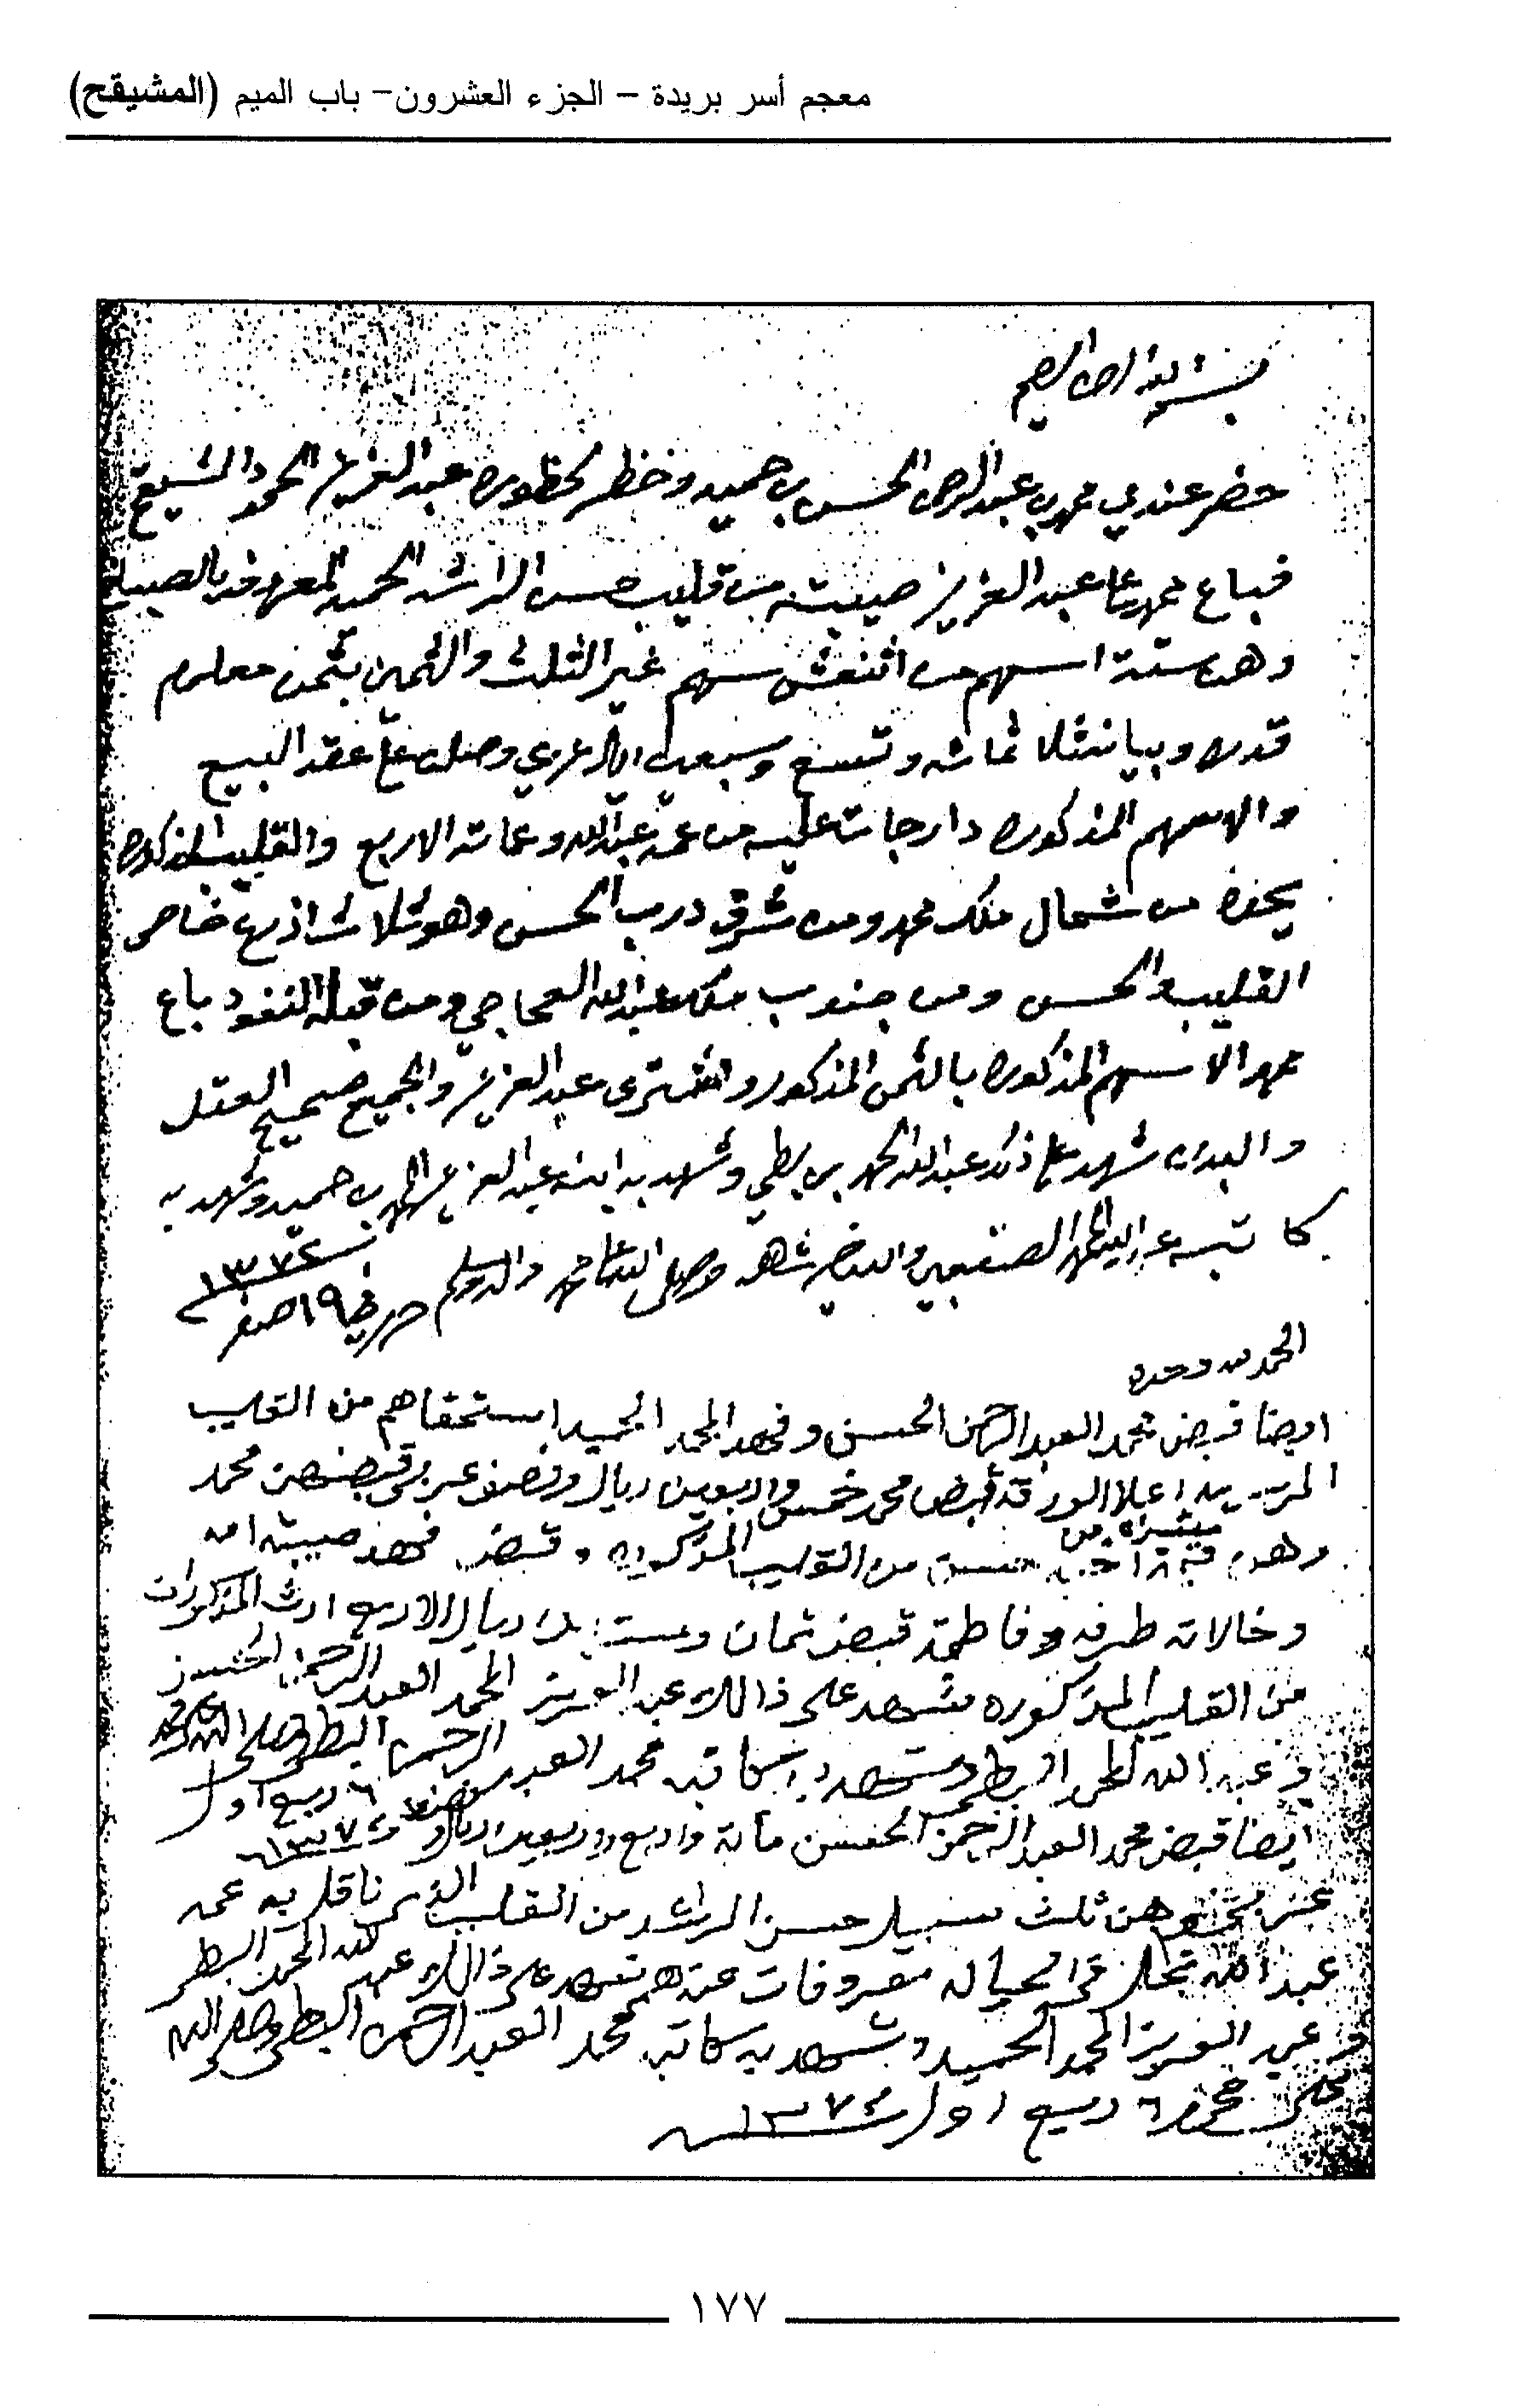 معجم أسر بريدة – الجزء العشرون– باب الميم (المشيقح)
بسم الله الرحمن الرحيم
حضر عندي محمد بن عبدالرحمن الحسن بن حميد وحظر لحظوره عبدالعزيز الحمود المشيقح
فباع محمد على عبدالعزيز صيبته من قليب حسن الراشد الحميد المعروفه بالصبيان
وهن ستة اسهم من اثنعشر سهم غير الثلث والثمين بثمن معلوم
قدره وبيانه ثلاثمائه وتسع وسبعين ريال عربي وصلن على عقد البيع
والاسهم المذكوره دارجات عليه من عمه عبدالله وعماته الاربع والقليب المذكوره
يحده من شمال ملك محمد ومن شرق درب الحسن وهو ثلاث اذرع خاص
القليب والحسن ومن جنوب ملك عبدالله العجاجي ومن قبله النفود باع
محمد الاسهم المذكوره بالثمن المذكور واشترى عبدالعزيز والجميع صحيح العقل
والبدن شهد على ذلك عبدالله الحمد بن بطي وشهد به ابنه عبدالعزيز المحمد بن حميد وشهد به
كاتبه عبدالله المحمد الصقعبي والله خير شاهد وصلى الله على محمد واله وسلم حرر في ١٩ صفر
١٣٧٤
الحمد لله وحده
ايضا قبض محمد العبدالرحمن الحسن وفهد المحمد الحميد استحقاهم من القليب
اعلا الورقه قبض محمد خمس واربعين ريال ونصف عربي قبضهن محمد
وهن من القليب المذكوره وقبض فهد صيبة امه
وخالاته طرفه وفاطمة قبض ثمان وستين ريال الاربع ارث المذكورات
من القليب المذكوره شهد على ذالك عبدالعزيز المحمد العبدالرحمن الحسن
وعبدالله الحمد البطي وشهد به كاتبه محمد العبدالرحمن البطي وصلى الله على محمد
٦ ربيع اول
١٣٧٤
ايضا قبض محمد العبدالرحمن الحسن مائة واربع واربعين ريال ونصف
عن ثلث سبيل حسن الراشد من القليب الذي ناقل به عمه
عبدالله نخل في المحياله معروفات عندهم شهد على ذالك عبدالله الحمد البطي
وعبدالعزيز المحمد الحميد وشهد به كاتبه محمد العبدالرحمن البطي وصلى الله
على محمد ٦ ربيع اول ١٣٧٤
١٧٧